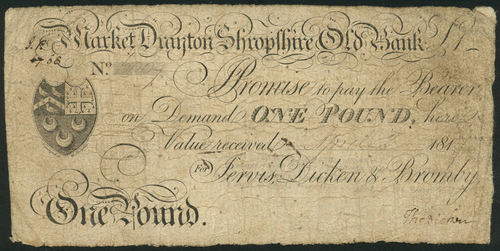 Market Drayton Shropshire Old Bank
No.
Promise to pay the Bearer
on Demand ONE POUND, here
Value received 181
For Jervis, Dicken & Bromby
One Pound.